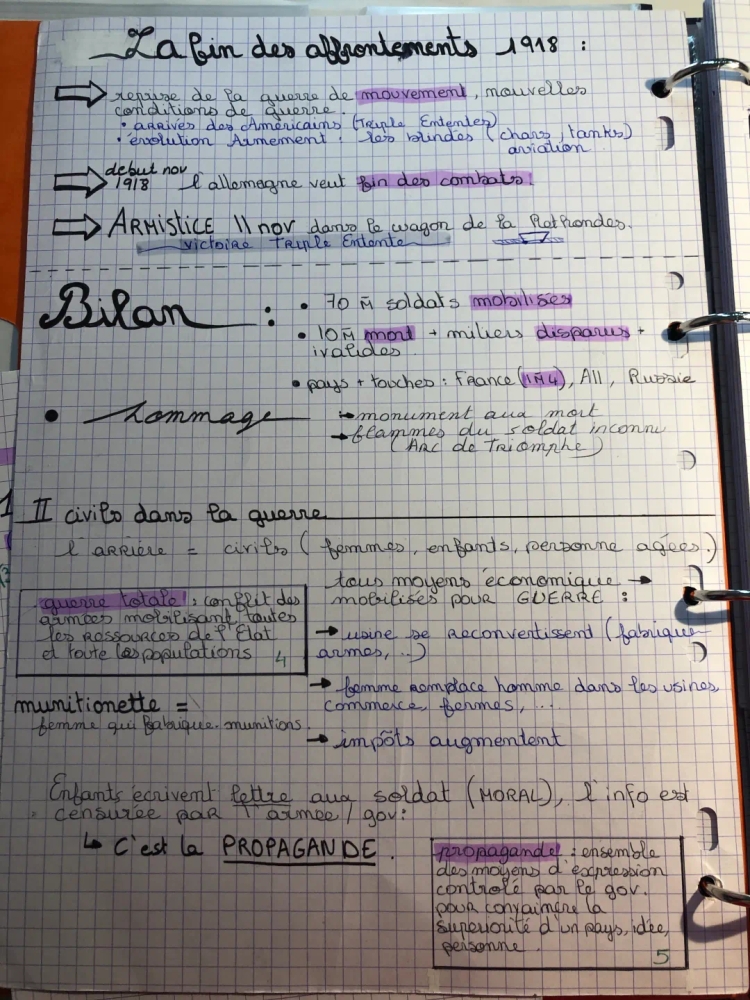 La fin des affrontements 1918 :
reprise de la guerre de mouvement, nouvelles
conditions de guerre.
• ARRIVÉS des Américains (Triple Ententes)
• évolution Armement : les blindés (chars, tanks)
aviation
début nov
1918 l'allemagne veut fin des combats!
ARMISTICE 11 nov dans le wagon de la Rothondes.
victoire Triple Entente
Bilan :
• 70 M soldats mobilisés
• 10M mort + miliers disparus +
ivalides.
• pays + touchés : France (1M4), All, Russie
• hommage
→ monument aux mort
→ flammes du soldat inconnu
(ARC de Triomphe)
II civils dans la guerre
l'ARRIÈRE = civils (femmes, enfants, personne agées.)
tous moyens économique →
mobilisés pour GUERRE :
guerre totale! : conflit des
armées mobilisant toutes
les RASSOURCES de l'État
et toute les populations 4
→ usine se reconvertissent (fabrique
armes, ...)
→ femme remplace homme dans les usines,
commerce, fermes, ...
munitionette =
femme qui fabrique munitions.
→ impôts augmentent
Enfants écrivent lettre aux soldat (MORAL), l'info est
censurée par l'armée / gov:
↳ C'est la PROPAGANDE.
propagande! : ensemble
des moyens d'expression
contrôlé par le gov.
pour convaincre la
supériorité d'un pays, idée,
personne.
5